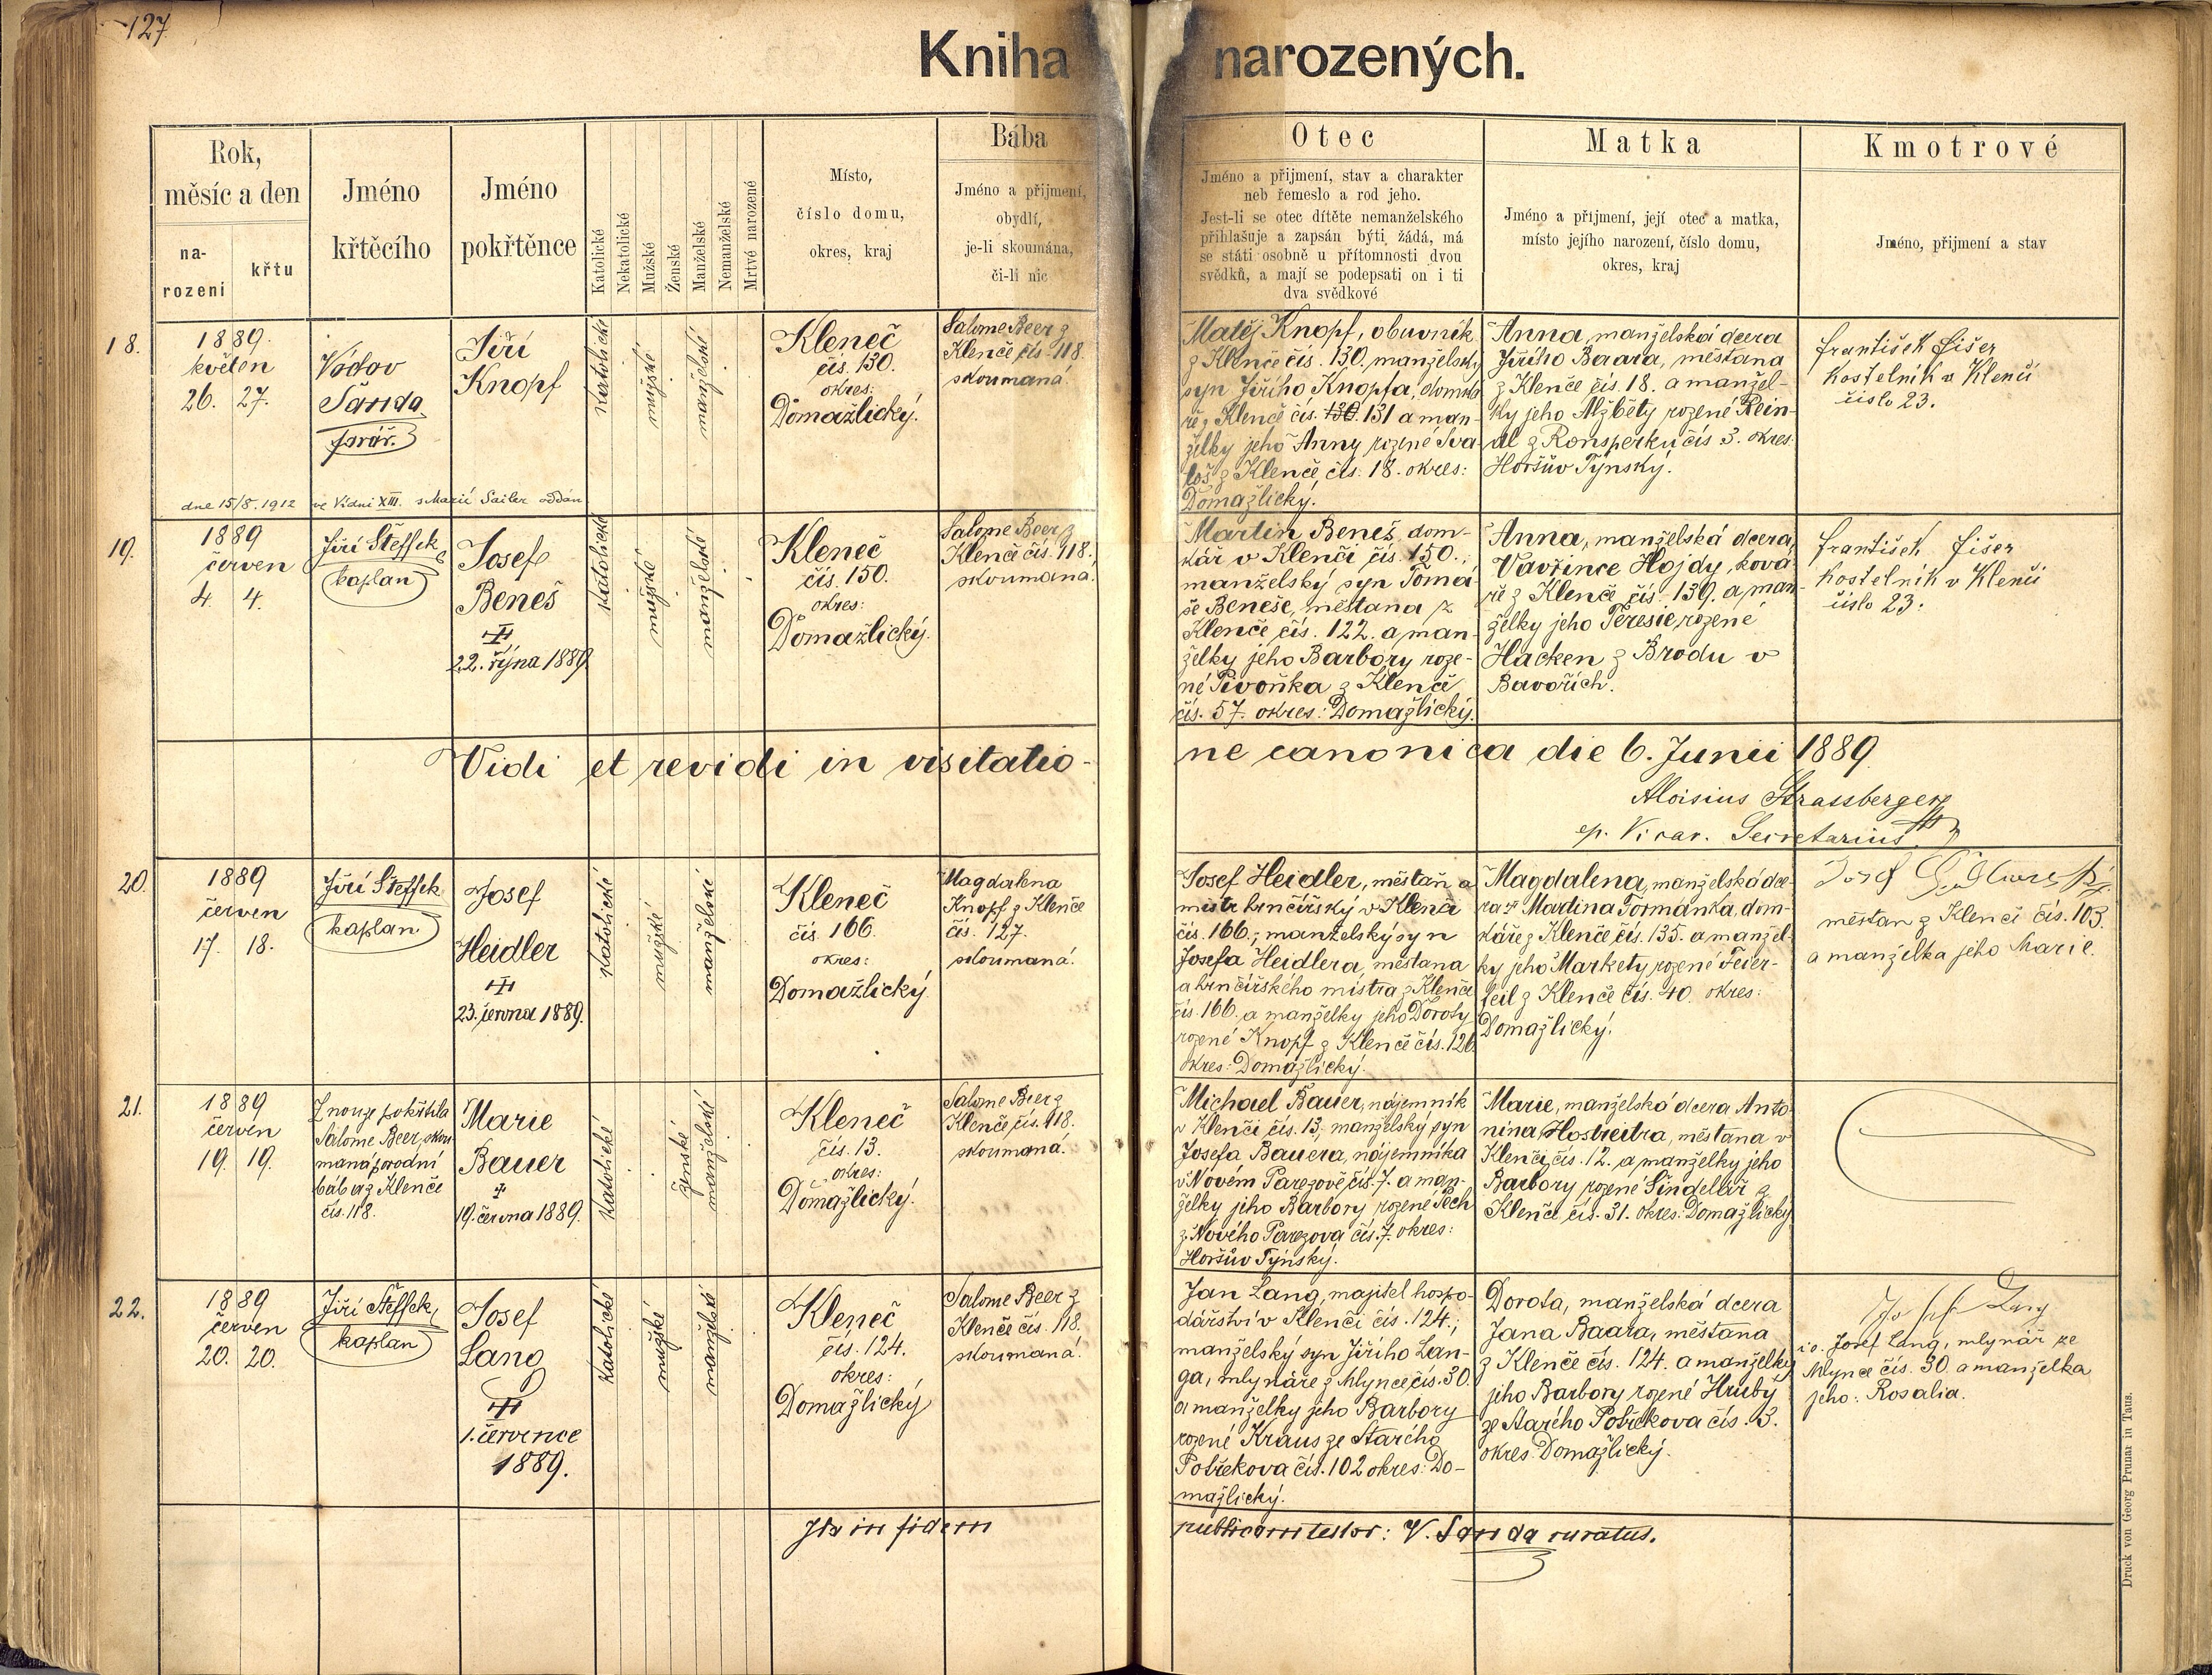 127.
Kniha narozených.
Rok,
měsíc a den
na-
rození
křtu
Jméno
křtěcího
Jméno
pokřtěnce
Katolické
Nekatolické
Mužské
Ženské
Manželské
Nemanželské
Mrtvé narozené
Místo,
číslo domu,
okres, kraj
Bába
Jméno a přijmení,
obydlí,
je-li skoumána,
či-li nic
Otec
Jméno a přijmení, stav a charakter
neb řemeslo a rod jeho.
Jest-li se otec dítěte nemanželského
přihlašuje a zapsán býti žádá, má
se státi osobně u přítomnosti dvou
svědků, a mají se podepsati on i ti
dva svědkové
Matka
Jméno a přijmení, její otec a matka,
místo jejího narození, číslo domu,
okres, kraj
Kmotrové
Jméno, přijmení a stav
18.
1889.
květen
26. 27.
Václav
Šanda
farář.
Jiří
Knopf
katolické
mužské
manželské
Kleneč
čís. 130.
okres:
Domažlický.
Salome Beer z
Klenče čís. 118
skoumaná.
Matěj Knopf, obuvník
z Klenče čís. 130. manželský
syn Jiřího Knopfa, domká-
ře z Klenče čís. 130. 131 a man-
želky jeho Anny rozené Sva-
loš z Klenče, čís. 18. okres:
Domažlický.
Anna, manželská dcera
Jiřího Baara, měšťana
z Klenče čís. 18. a manžel-
ky jeho Alžběty rozené Rein-
dl z Ronsperku čís 3. okres.
Horšův Týnský.
František Fišer
kostelník v Klenči
číslo 23.
dne 15/8. 1912 ve Vídni XIII. s Marií Sailer oddán
19.
1889
červen
4. 4.
Jiří Šteffek
kaplan
Josef
Beneš
22. října 1889
katolické
mužské
manželské
Kleneč
čís. 150.
okres:
Domažlický.
Salome Beer z
Klenče čís. 118.
skoumaná.
Martin Beneš, dom-
kář v Klenči čís. 150.,
manželský syn Tomá-
še Beneše, měšťana z
Klenče čís. 122. a man-
želky jeho Barbory roze-
né Pivoňka z Klenče
čís. 57. okres: Domažlický.
Anna, manželská dcera
Vavřince Hojdy, ková-
ře z Klenče čís. 139. a man-
želky jeho Teresie, rozené
Hacken z Brodu v
Bavořích.
František Fišer
kostelník v Klenči
číslo 23.
Vidi et revidi in visitatio-
ne canonica die 6. Junii 1889
Aloisius Strassberger
ep. Vicar. Secretarius
20.
1889
červen
17. 18.
Jiří Šteffek
kaplan.
Josef
Heidler
23. června 1889.
katolické
mužské
manželské
Kleneč
čís. 166.
okres:
Domažlický
Magdalena
Knopf z Klenče
čís. 127.
skoumaná.
Josef Heidler, měšťan a
mistr hrnčířský v Klenči
čís. 166.; manželský syn
Josefa Heidlera, měšťana
a hrnčířského mistra z Klenče
čís. 166. a manželky jeho Doroty
rozené Knopf z Klenče čís. 126.
okres: Domažlický.
Magdalena, manželská dce-
ra Martina Formánka, dom-
káře z Klenče čís. 135. a manžel-
ky jeho Markety rozené Feier-
feil z Klenče čís. 40. okres:
Domažlický.
Josef
měšťan z Klenčí čís. 103.
a manželka jeho Marie.
21.
1889
červen
19. 19.
Z nouze pokřtila
Salome Beer, skou
maná porodní
bába z Klenče
čís. 118.
Marie
Bauer
19. června 1889.
katolické
ženské
manželské
Kleneč
čís. 13.
okres:
Domažlický.
Salome Beer z
Klenče čís. 118.
skoumaná.
Michael Bauer, nájemník
v Klenči čís. 13; manželský syn
Josefa Bauera, nájemníka
v Novém Parezově čís. 7. a man-
želky jeho Barbory rozené Pech
z Nového Parezova čís. 7. okres:
Horšův Týnský.
Marie, manželská dcera Anto-
nína Hostreitra, měšťana v
Klenči, čís. 12. a manželky jeho
Barbory rozené Šindelář z
Klenče čís. 31. okres: Domažlický
22.
1889
červen
20. 20.
Jiří Šteffek,
kaplan
Josef
Lang
1. července
1889.
katolické
mužské
manželské
Kleneč
čís. 124.
okres:
Domažlický
Salome Beer z
Klenče čís. 118.
skoumaná.
Jan Lang, majitel hospo-
dářství v Klenči čís. 124.;
manželský syn Jiřího Lan-
ga, mlynáře z Mlynce čís. 30.
a manželky jeho Barbory
rozené Kraus ze Starého
Postřekova čís. 102 okres: Do-
mažlický.
Dorota, manželská dcera
Jana Baara, měšťana
z Klenče čís. 124. a manželky
jeho Barbory rozené Hrubý
ze Starého Postřekova čís. 3.
okres Domažlický.
Josef Lang
Josef Lang, mlynář ze
Mlynce čís. 30. a manželka
jeho: Rosalia.
Ita in fidem
publicam testor: V. Šanda curatus.
Druck von Georg Prunar in Taus.